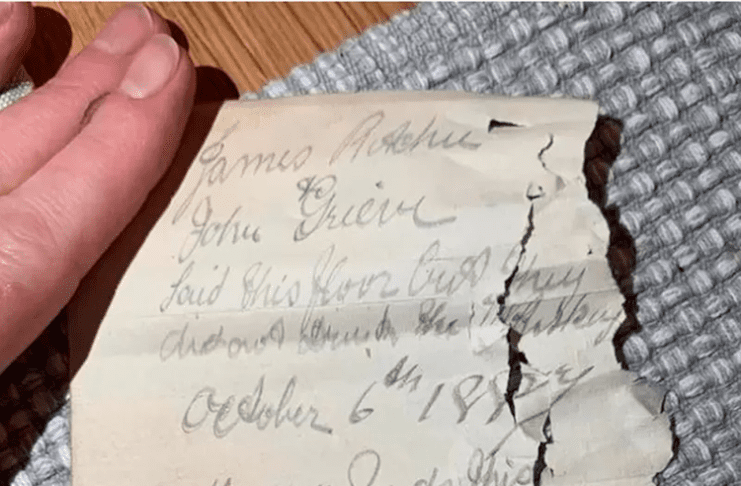 James Ritchie
& John Grieve
laid this floor but they
did not drink the Whisky
October 6th 1887
this